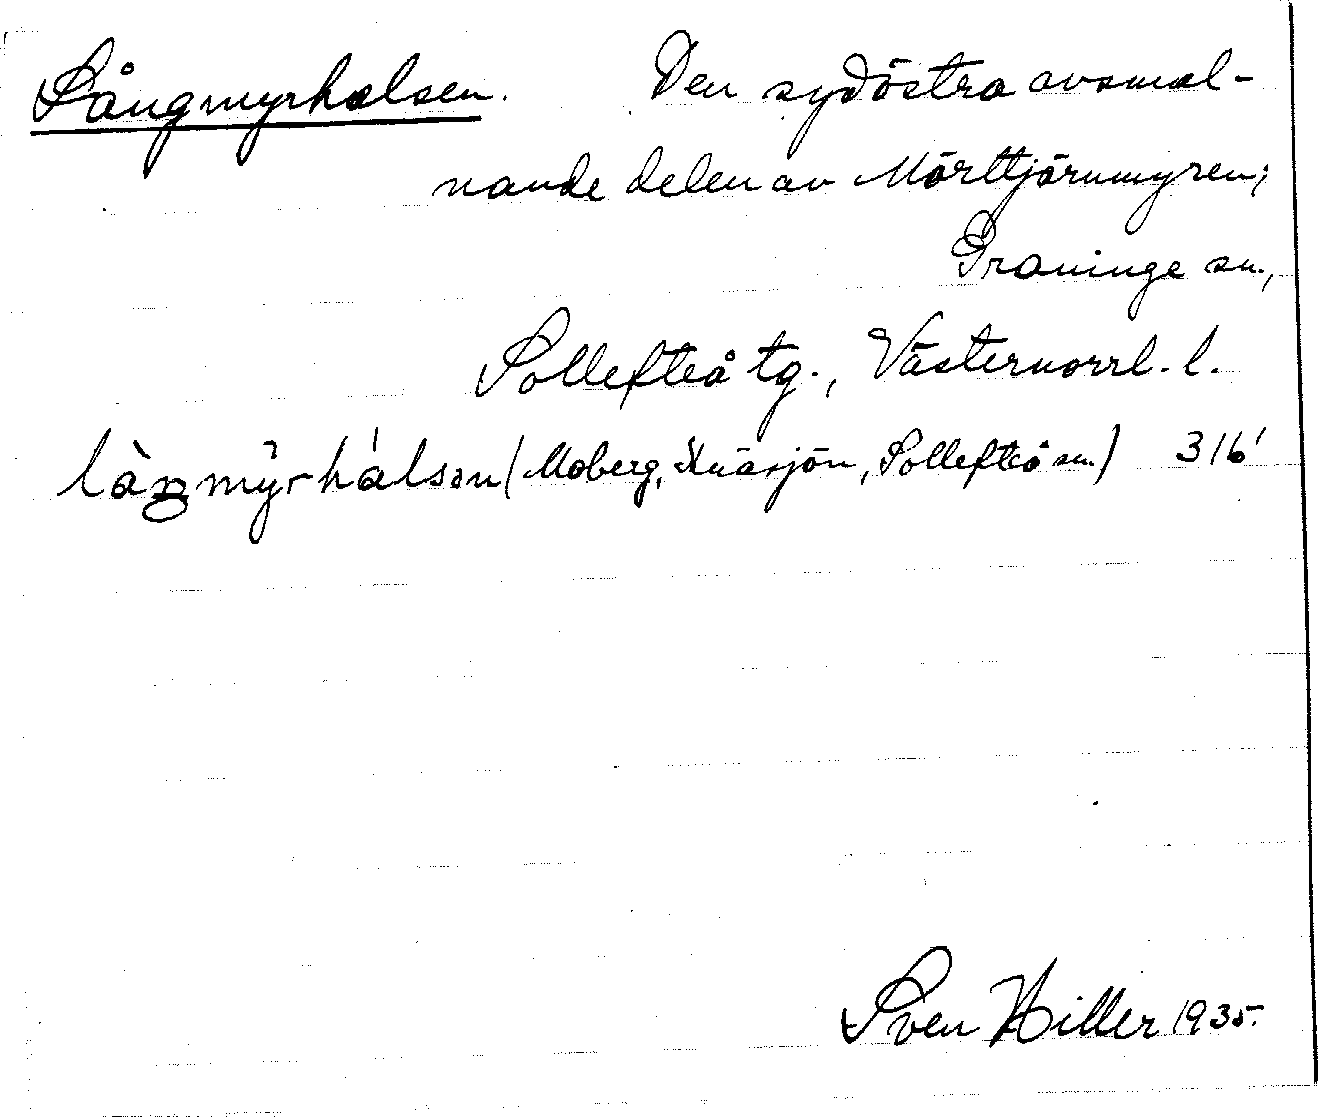 Långmyrhalsen. Den sydöstra avsmal-
nande delen av Mörttjärnmyren;
Graninge sn.,
Sollefteå tg., Västernorrl. l.
(Moberg, Knäsjön, Sollefteå sn.) 316'
Sven Hiller 1935.